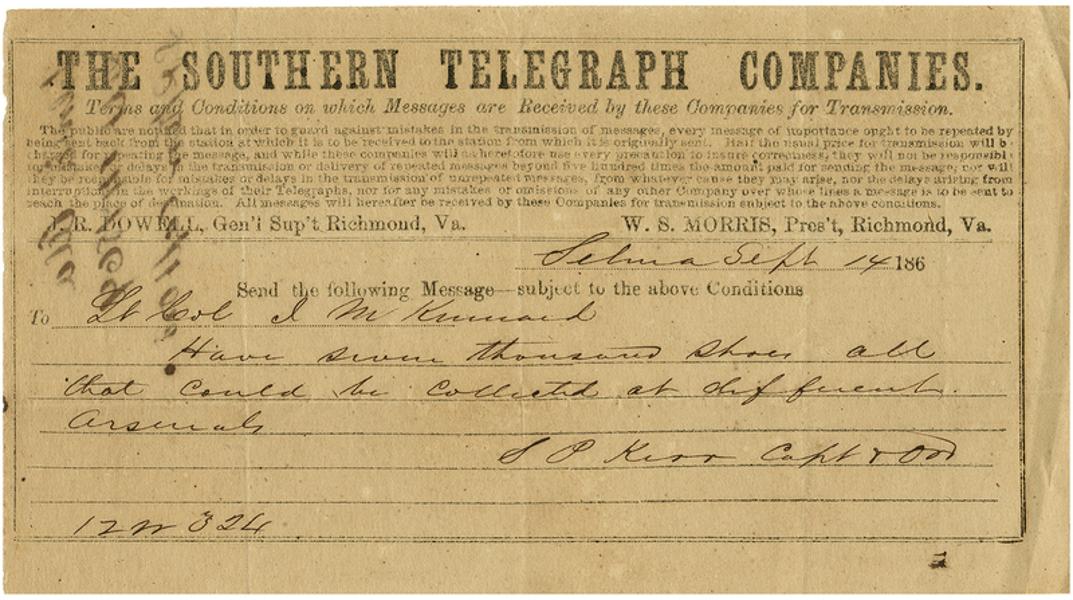 THE SOUTHERN TELEGRAPH COMPANIES.
Terms and Conditions on which Messages are Received by these Companies for Transmission.
The public are notified that in order to guard against mistakes in the transmission of messages, every message of importance ought to be repeated by
being sent back from the station at which it is to be received to the station from which it is originally sent. Half the usual price for transmission will b
charged for repeating the message, and while these companies will as heretofore use every precaution to insure correctness, they will not be responsibl
for mistakes or delays in the transmission or delivery of repeated messages beyond five hundred times the amount paid for sending the message; nor will
they be responsible for mistakes or delays in the transmission of unrepeated messages, from whatever cause they may arise, nor for delays arising from
interruptions in the workings of their Telegraphs, nor for any mistakes or omissions of any other Company over whose lines a message is to be sent to
reach the place of destination. All messages will hereafter be received by these Companies for transmission subject to the above conditions.
J. R. DOWELL, Gen'l Sup't Richmond, Va. W. S. MORRIS, Pres't, Richmond, Va.
Selma Sept 14 186
Send the following Message—subject to the above Conditions
To Lt Col J M Kennard
Have seven thousand shoes all
that could be collected at different
Arsenals
S P Kerr Capt & OO
12 324